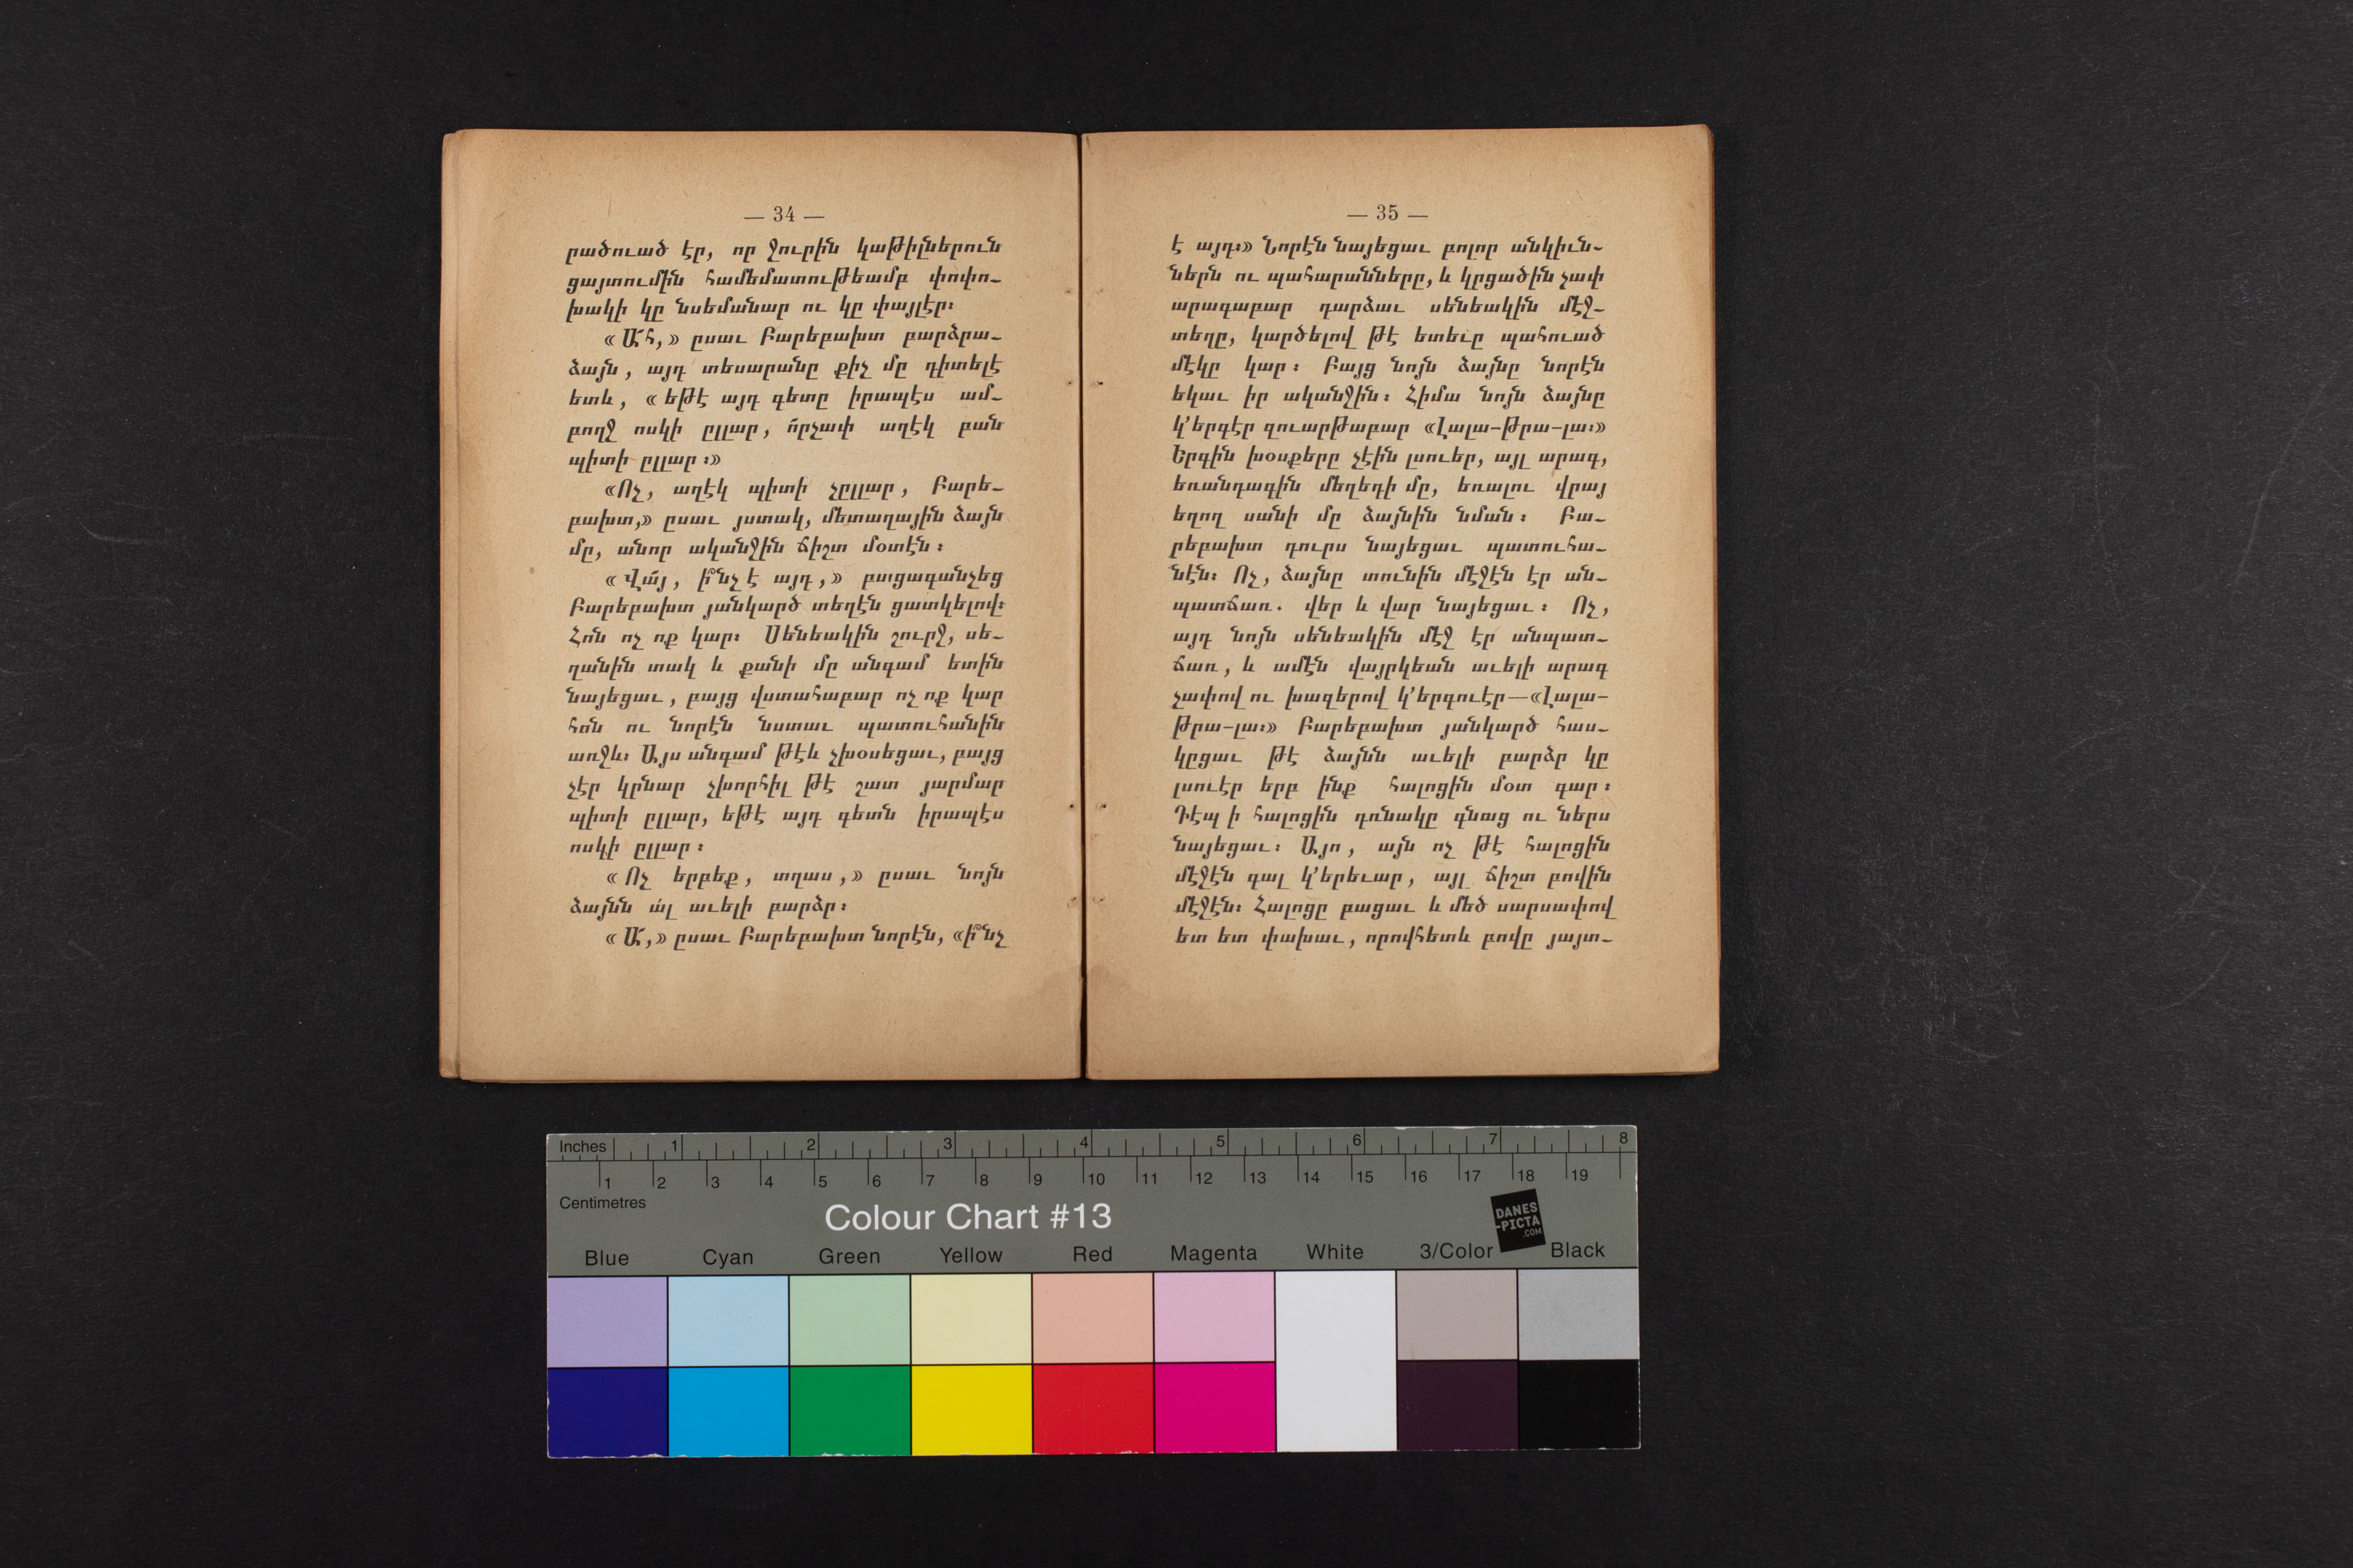 — 34 —
րածուած էր, որ ջուրին կաթիլներուն
ցայտումին համեմատութեամբ փոփո-
խակի կը նսեմանար ու կը փայլէր։
«Ա՜հ,» ըսաւ Բարեբախտ բարձրա-
ձայն, այդ տեսարանը քիչ մը դիտելէ
ետև, «եթէ այդ գետը իրապէս ամ-
բողջ ոսկի ըլլար, ո՜րչափ աղէկ բան
պիտի ըլլար։»
«Ոչ, աղէկ պիտի չըլլար, Բարե-
բախտ,» ըսաւ յստակ, մետաղային ձայն
մը, անոր ականջին ճիշտ մօտէն։
«Վա՜յ, ի՞նչ է այդ,» բացագանչեց
Բարեբախտ յանկարծ տեղէն ցատկելով։
Հոն ոչ ոք կար։ Սենեակին շուրջ, սե-
ղանին տակ և քանի մը անգամ ետին
նայեցաւ, բայց վստահաբար ոչ ոք կար
հոն ու նորէն նստաւ պատուհանին
առջև։ Այս անգամ թէև չխօսեցաւ, բայց
չէր կրնար չխորհիլ թէ շատ յարմար
պիտի ըլլար, եթէ այդ գետն իրապէս
ոսկի ըլլար։
«Ոչ երբեք, տղաս,» ըսաւ նոյն
ձայնն ա՛լ աւելի բարձր։
«Ա՜,» ըսաւ Բարեբախտ նորէն, «ի՞նչ
— 35 —
է այդ։» Նորէն նայեցաւ բոլոր անկիւն-
ներն ու պահարանները, և կրցածին չափ
արագաբար դարձաւ սենեակին մէջ-
տեղը, կարծելով թէ ետեւը պահուած
մէկը կար։ Բայց նոյն ձայնը նորէն
եկաւ իր ականջին։ Հիմա նոյն ձայնը
կ՚երգէր զուարթաբար «Լալա-թրա-լա։»
Երգին խօսքերը չէին լսուեր, այլ արագ,
եռանդագին մեղեդի մը, եռալու վրայ
եղող սանի մը ձայնին նման։ Բա-
րեբախտ դուրս նայեցաւ պատուհա-
նէն։ Ոչ, ձայնը տունին մէջէն էր ան-
պատճառ. վեր և վար նայեցաւ։ Ոչ,
այդ նոյն սենեակին մէջ էր անպատ-
ճառ, և ամէն վայրկեան աւելի արագ
չափով ու խաղերով կ՚երգուէր—«Լալա-
թրա-լա։» Բարեբախտ յանկարծ հաս-
կըցաւ թէ ձայնն աւելի բարձր կը
լսուէր երբ ինք հալոցին մօտ գար։
Դէպ ի հալոցին դռնակը գնաց ու ներս
նայեցաւ։ Այո, այն ոչ թէ հալոցին
մէջէն գալ կ՚երեւար, այլ ճիշտ բովին
մէջէն։ Հալոցը բացաւ և մեծ սարսափով
ետ ետ փախաւ, որովհետև բովը յայտ-
Inches 1 2 3 4 5 6 7 8
1 2 3 4 5 6 7 8 9 10 11 12 13 14 15 16 17 18 19
Centimetres
Colour Chart #13
DANES
-PICTA
.COM
Blue Cyan Green Yellow Red Magenta White 3/Color Black